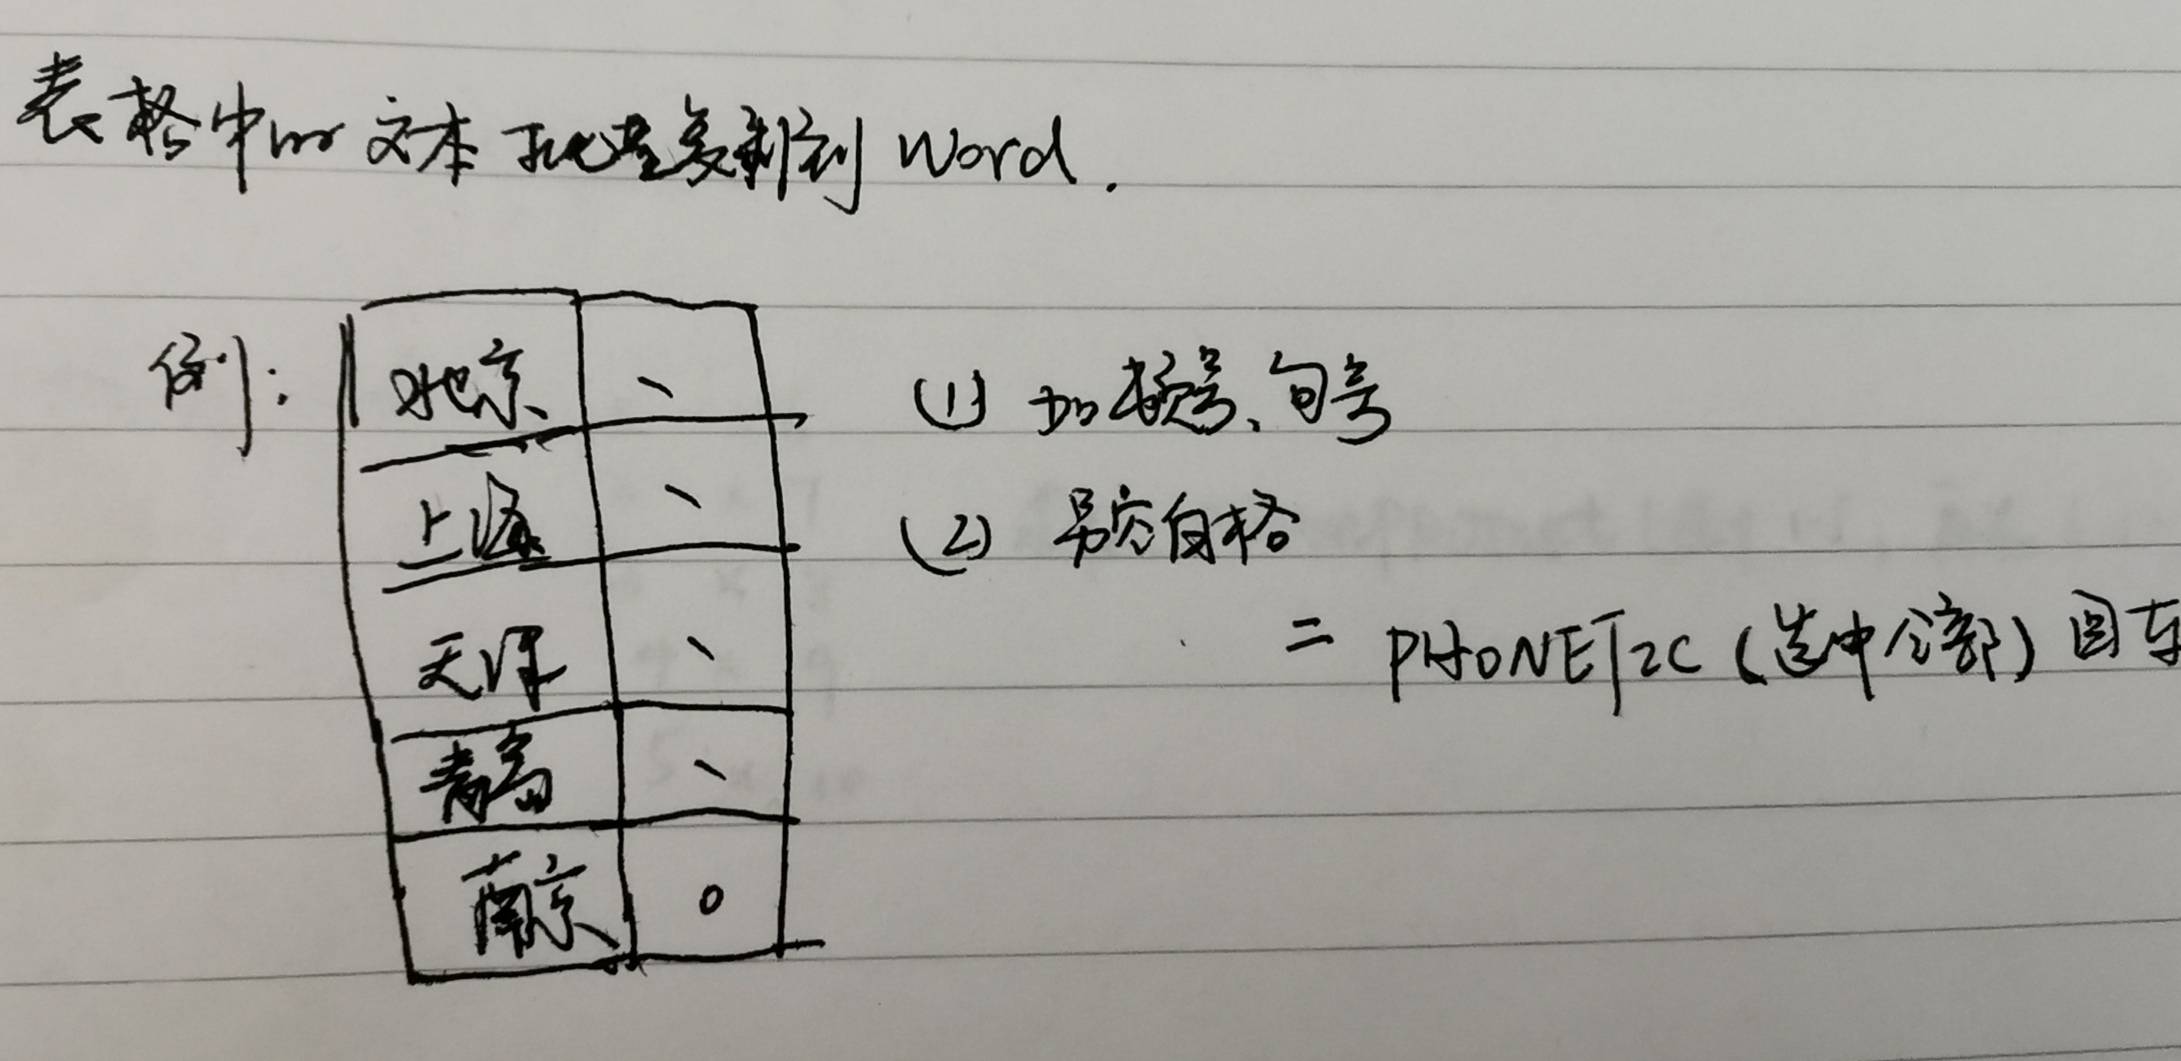 表格中的文本批量复制到 Word.
例:
北京 、
上海 、
天津 、
青岛 、
南京 。
(1) 加顿号、句号
(2) 另空白格
= PHONETIC (选中全部) 回车